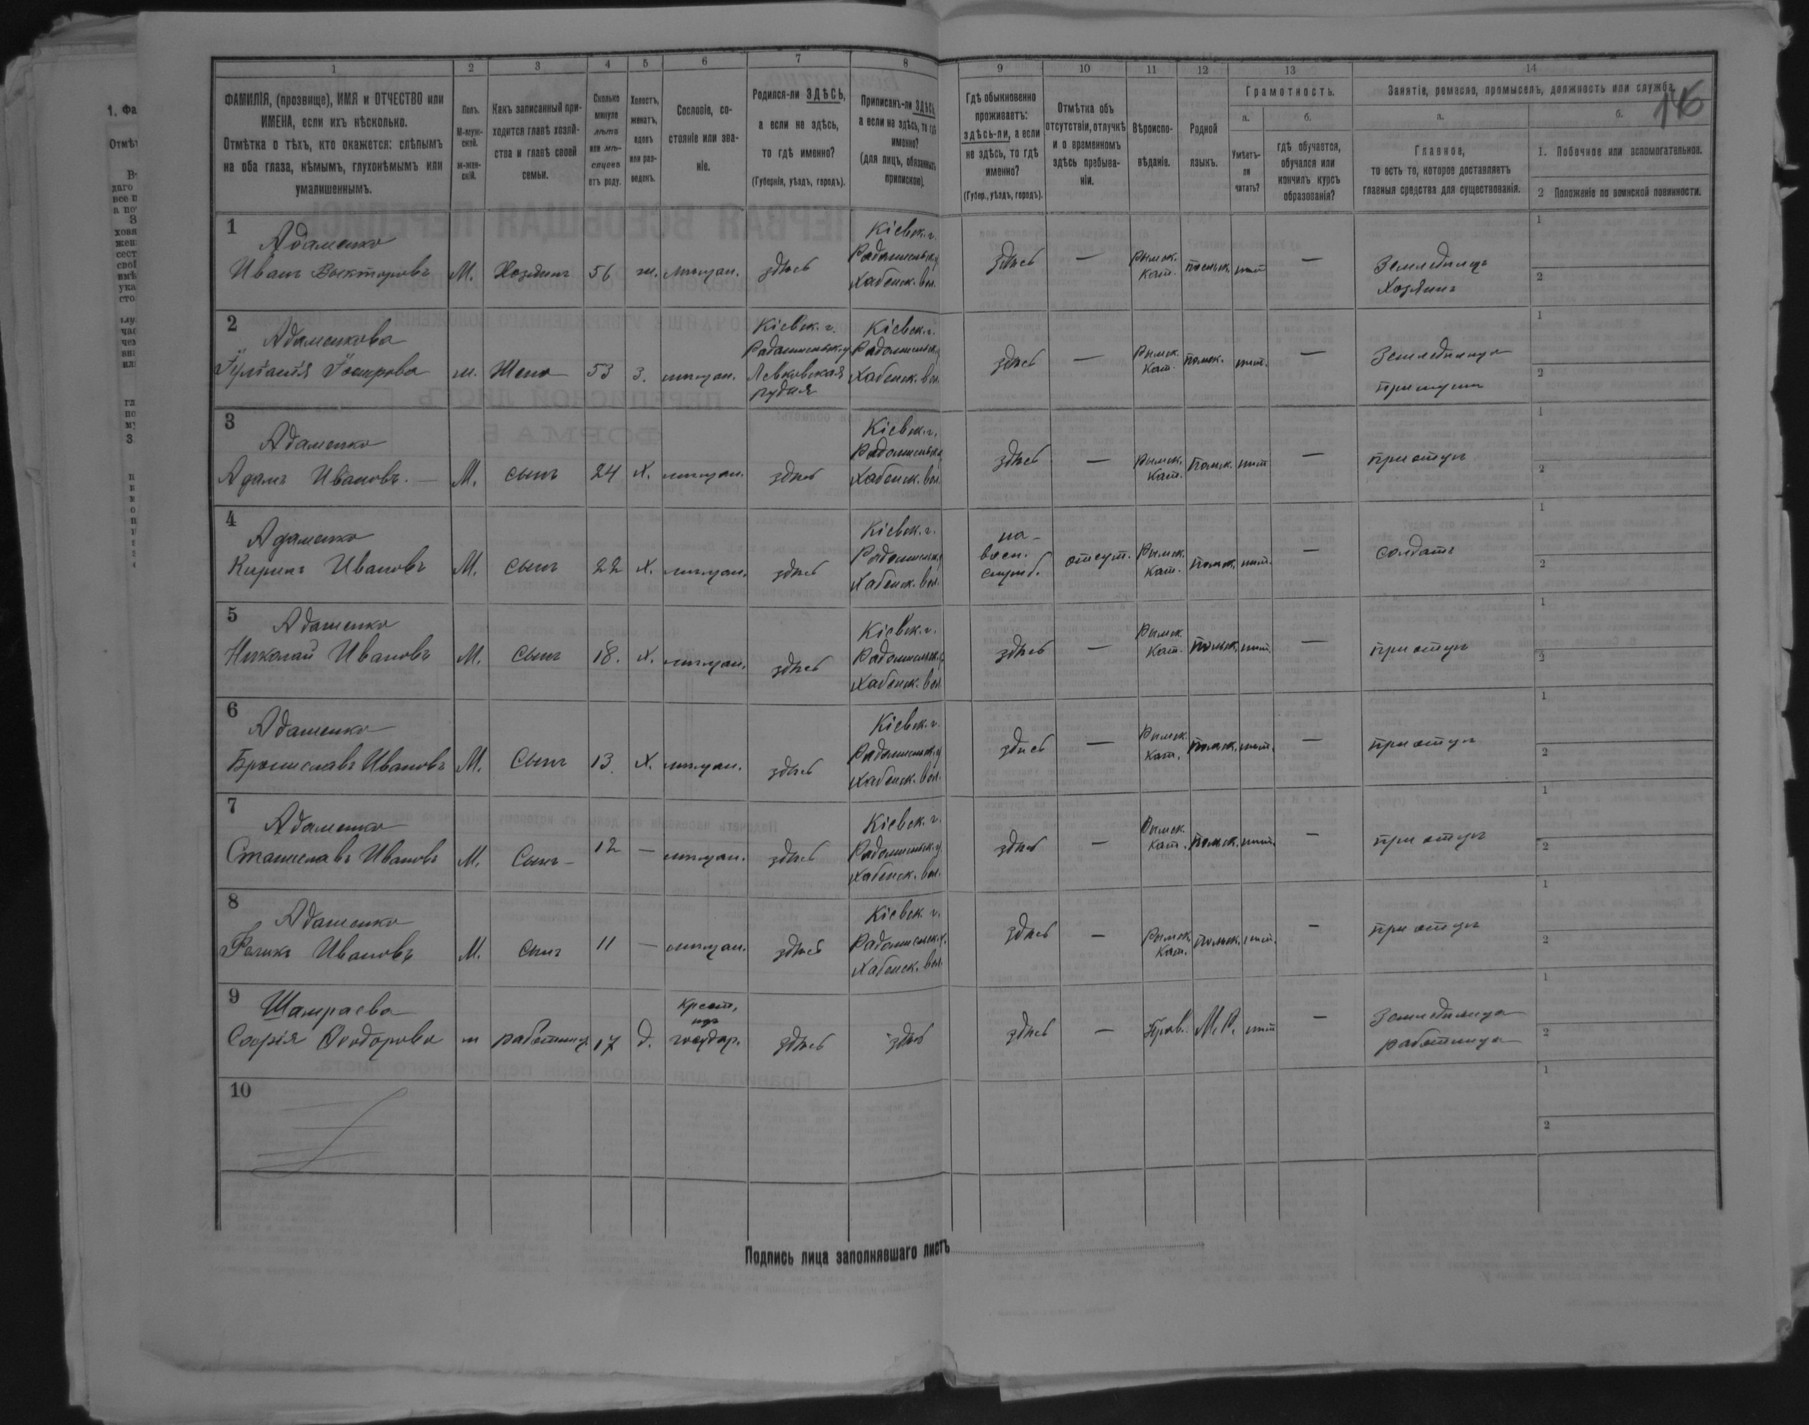 146
1
2
3
4
5
6
7
8
9
10
11
12
13
14
ФАМИЛІЯ, (прозвище), ИМЯ и ОТЧЕСТВО или
ИМЕНА, если ихъ нѣсколько.
Отмѣтка о тѣхъ, кто окажется: слѣпымъ
на оба глаза, нѣмымъ, глухонѣмымъ или
умалишеннымъ.
Полъ.
М-мужской.
ж-женскій.
Какъ записанный приходится главѣ хозяйства и главѣ своей
семьи.
Сколько
минуло
лѣтъ
или мѣсяцевъ
отъ роду.
Холостъ,
женатъ,
вдовъ
или разведенъ.
Сословіе, состояніе или званіе.
Родился-ли ЗДѢСЬ,
а если не здѣсь,
то гдѣ именно?
(Губернія, уѣздъ, городъ).
Приписанъ-ли ЗДѢСЬ,
а если не здѣсь, то гдѣ
именно?
(для лицъ, обязанныхъ
припискою).
Гдѣ обыкновенно
проживаетъ:
здѣсь-ли, а если
не здѣсь, то гдѣ
именно?
(Губер., уѣздъ, городъ).
Отмѣтка объ
отсутствіи, отлучкѣ
и о временномъ
здѣсь пребываніи.
Вѣроисповѣданіе.
Родной
языкъ.
Грамотность.
а.
Умѣетъ-ли
читать?
б.
гдѣ обучается,
обучался или
кончилъ курсъ
образованія?
Занятія, ремесло, промыселъ, должность или служба.
а.
Главное,
то есть то, которое доставляетъ
главныя средства для существованія.
б.
1. Побочное или вспомогательное.
2 Положеніе по воинской повинности.
1
Адаменко
Иванъ Викторовъ М. Хозяинъ 56 ж. мѣщан. здѣсь Кіевск. г. Радомысльск. у. Хабенск. вол. здѣсь — Римск. Кат. польск. нѣт — Земледѣлецъ Хозяинъ
2
Адаменкова
Петрова ж. Жена 53 з. мѣщан. Кіевск. г. Радомысльск. у. Левковская рудня Кіевск. г. Радомысльск. у. Хабенск. вол. здѣсь — Римск. Кат. польск. нѣт. — Земледѣлица
3
Адаменко
Адамъ Ивановъ. М. сынъ 24 х. мѣщан. здѣсь Кіевск. г. Радомысльск. у. Хабенск. вол. здѣсь — Римск. Кат. польск. нѣт — при отцѣ
4
Адаменко
Ивановъ М. сынъ 22 х. мѣщан. здѣсь Кіевск. г. Радомысльск. у. Хабенск. вол. на воен. служб. отсут. Римск. Кат. польск. нѣт. — солдатъ
5
Адаменко
Николай Ивановъ М. сынъ 18. х. мѣщан. здѣсь Кіевск. г. Радомысльск. у. Хабенск. вол. здѣсь — Римск. Кат. польск. нѣт. — при отцѣ
6
Адаменко
Брониславъ Ивановъ М. Сынъ 13. х. мѣщан. здѣсь Кіевск. г. Радомысльск. у. Хабенск. вол. здѣсь — Римск. Кат. польск. нѣт. — при отцѣ
7
Адаменко
Станиславъ Ивановъ М. Сынъ 12 — мѣщан. здѣсь Кіевск. г. Радомысльск. у. Хабенск. вол. здѣсь — Римск. Кат. польск. нѣт. — при отцѣ
8
Адаменко
Феликъ Ивановъ М. сынъ 11 — мѣщан. здѣсь Кіевск. г. Радомысльск. у. Хабенск. вол. здѣсь — Римск. Кат. польск. нѣт. — при отцѣ
9
Шамраева
Софія Ѳеодорова ж работница 17 д. Крест. изъ государ. здѣсь здѣсь здѣсь — Прав. М.Р. нѣт — Земледѣлица работница
10
Подпись лица заполнявшаго листъ